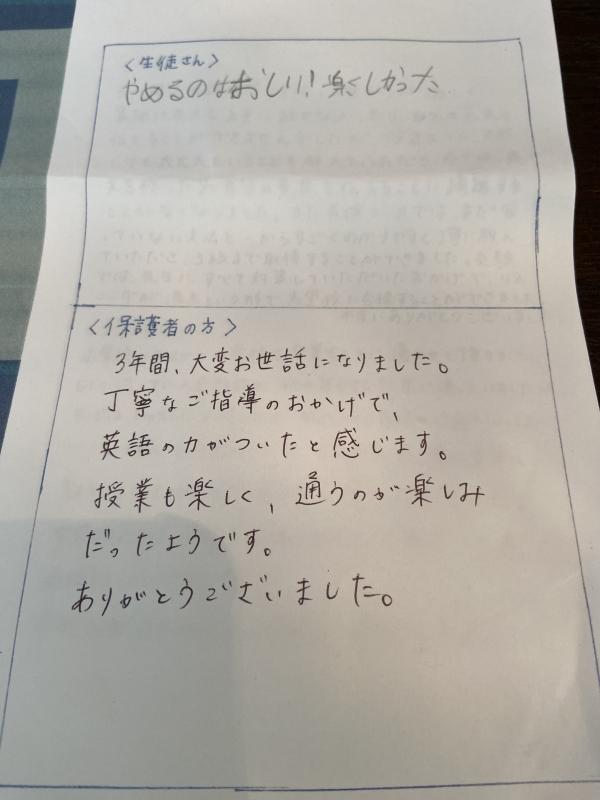 <生徒さん>
やめるのはおしい！楽しかった
<保護者の方>
3年間、大変お世話になりました。
丁寧なご指導のおかげで、
英語の力がついたと感じます。
授業も楽しく、通うのが楽しみ
だったようです。
ありがとうございました。